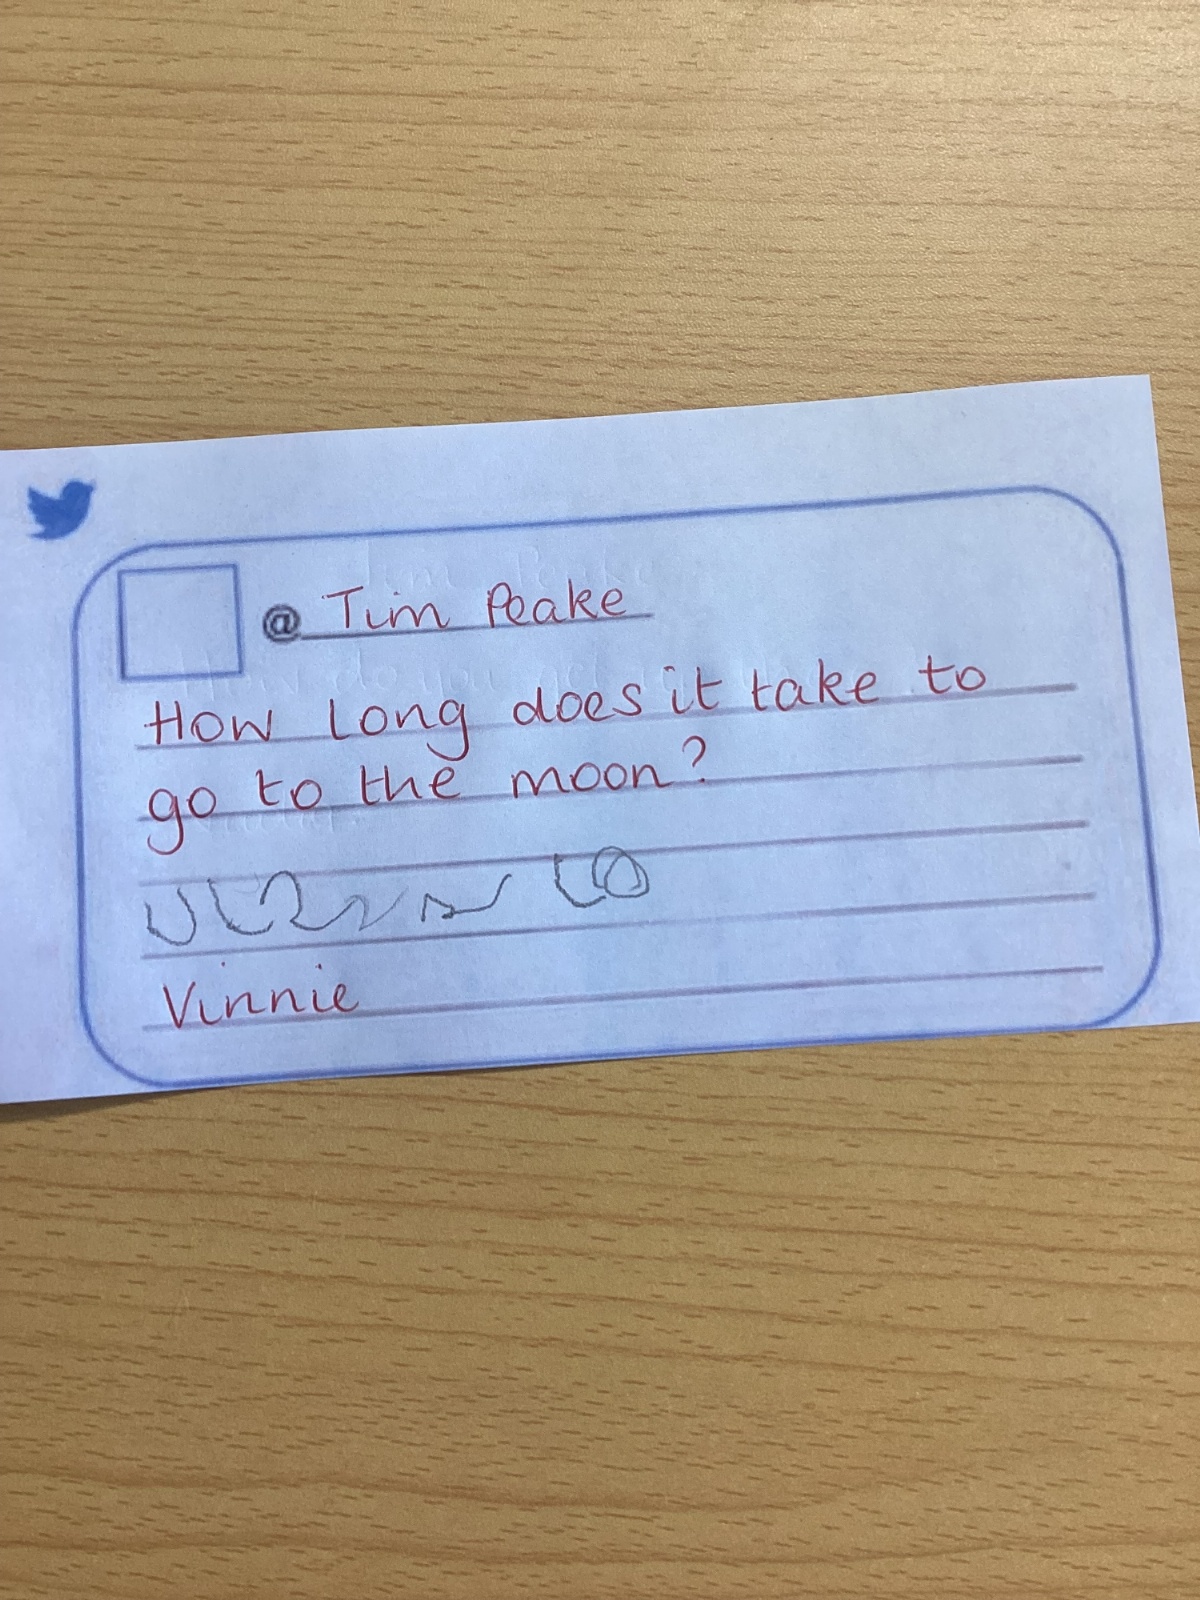 @ Tim Peake
How long does it take to
go to the moon?
Vinnie